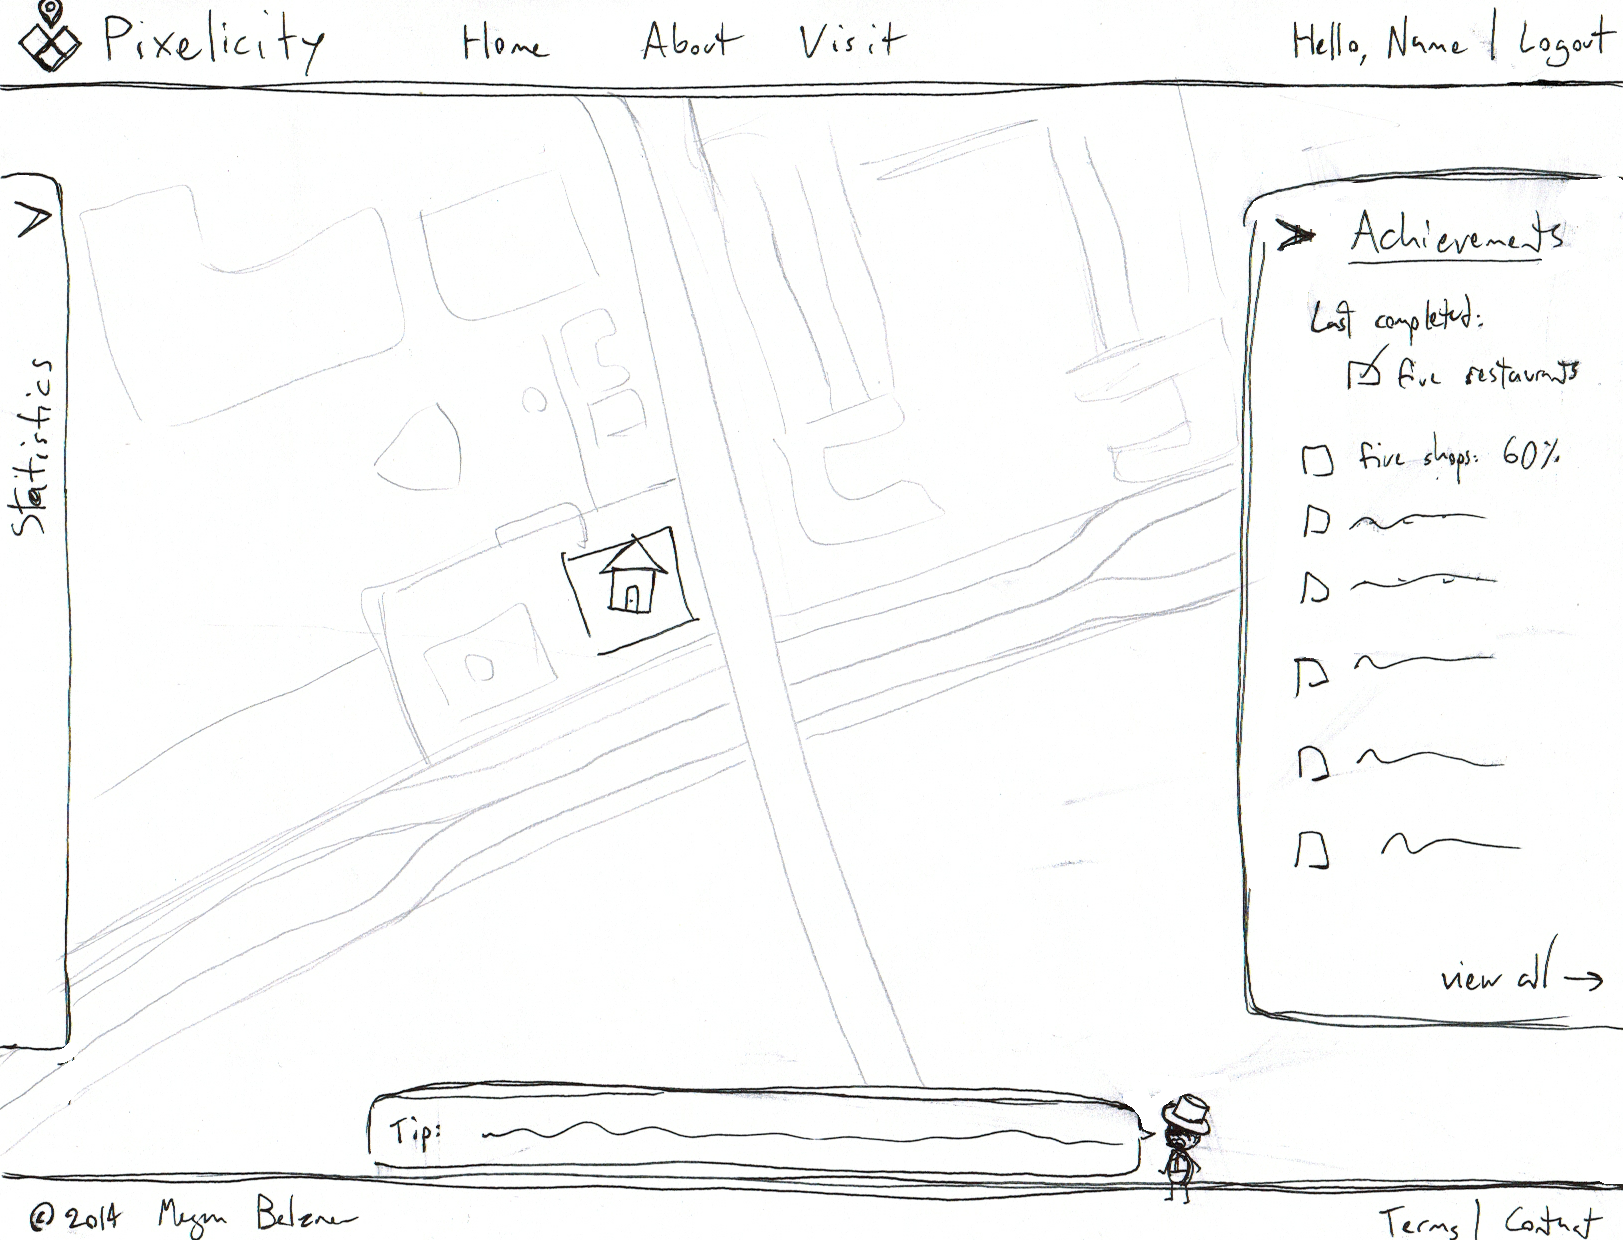 Pixelicity Home About Visit Hello, Name | Logout
Statistics
Achievements
Last completed:
five restaurants
five shops: 60%
view all →
Tip:
© 2014 Megan Belzner
Terms | Contact